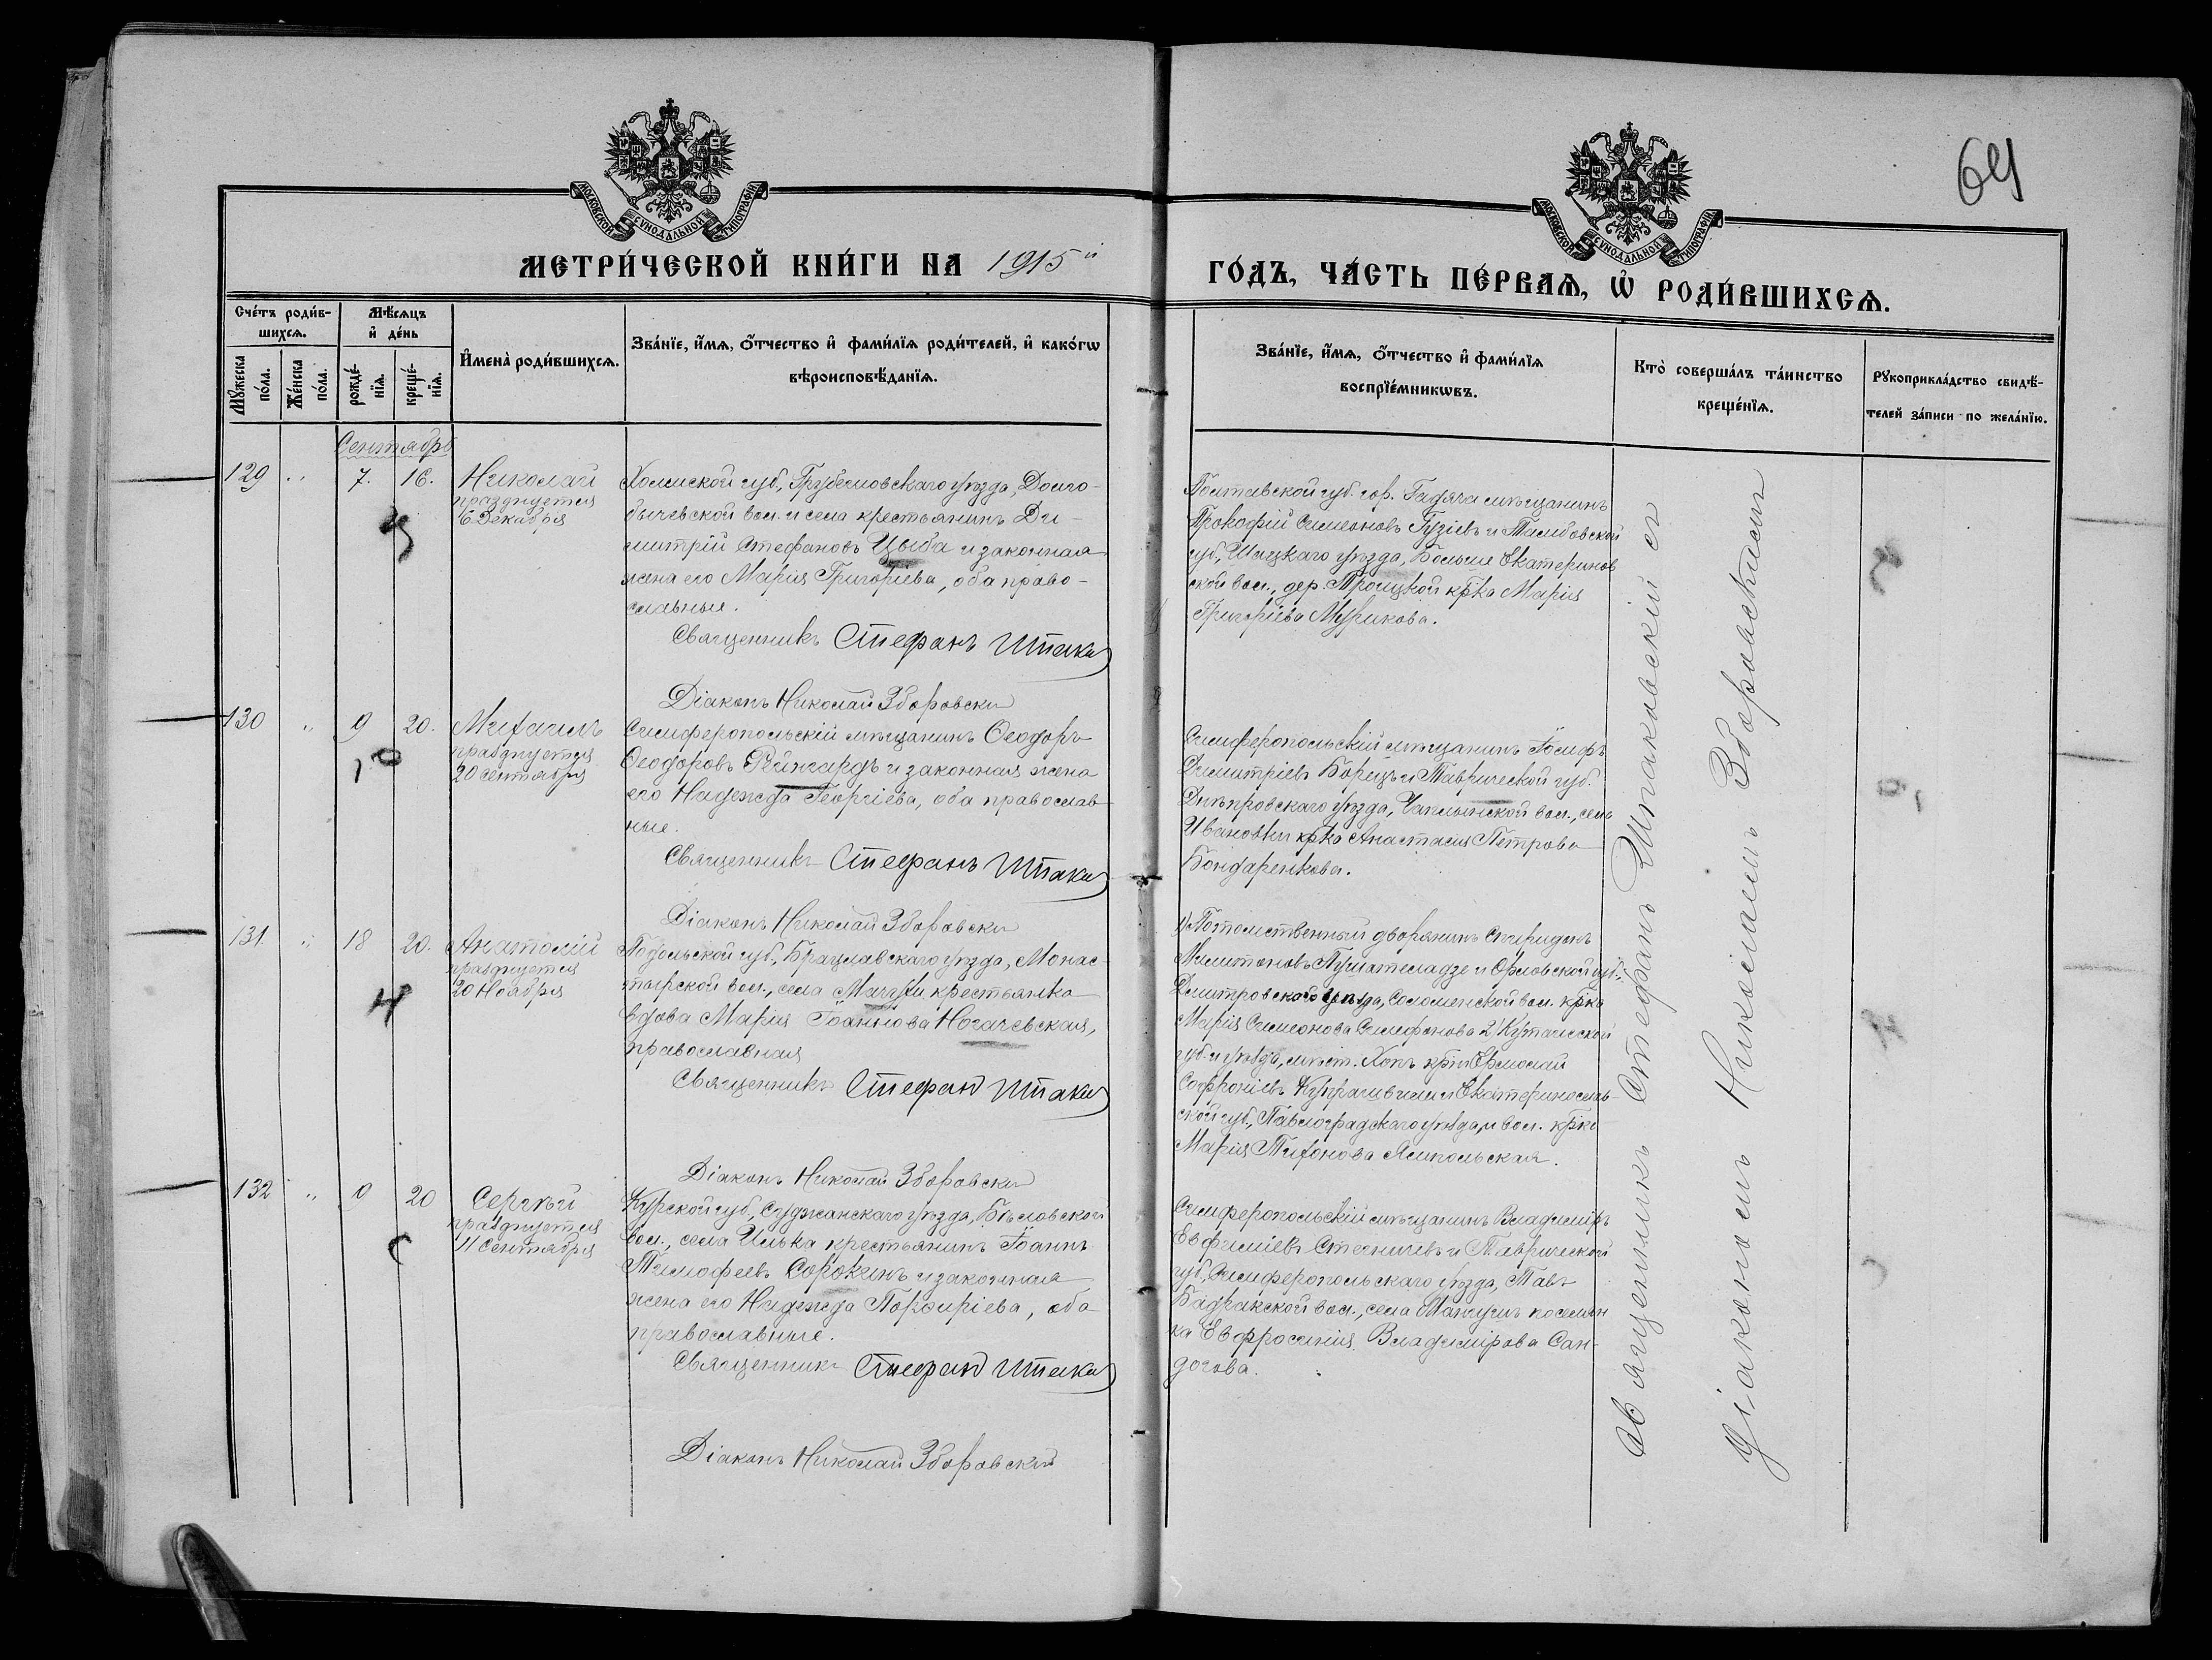 64
МОСКОВСКОЙ СУНОДАЛЬНОЙ ТИПОГРАФІИ
МОСКОВСКОЙ СУНОДАЛЬНОЙ ТИПОГРАФІИ
МЕТРИ́ЧЕСКОЙ КНИ́ГИ НА 1915й
ГО́ДЪ, ЧА́СТЬ ПЕ́РВАѦ, Ѽ РОДИ́ВШИХСѦ.
Сче́тъ роди́в-
шихсѧ.
Мꙋжеска
по́ла.
Же́нска
по́ла.
Мѣ́сѧцъ
и҆ де́нь
рожде́-
нїѧ.
креще́-
нїѧ.
И҆мена̀ роди́вшихсѧ.
Зва́нїе, и҆́мѧ, ѻ҆́тчество и҆ фами́лїѧ роди́телей, и҆ како́гѡ
вѣроисповѣ́данїѧ.
Зва́нїе, и҆́мѧ, ѻ҆́тчество и҆ фами́лїѧ
воспрїе́мникѡвъ.
Кто̀ соверша́лъ та́инство
креще́нїѧ.
Рꙋкоприкла́дство свидѣ́-
телей за́писи по жела́нїю.
Сентябрь
129 " 7. 16. Николай
празднуется
6 Декабря
Холмской губ., Грубешовскаго уѣзда, Долго-
бычевской вол. и села крестьянинъ Ди-
митрій Стефановъ Цыба и законная
жена его Марія Григоріева, оба право-
славные.
Священникъ Стефанъ Шпаки
Діаконъ Николай Зборовски
Полтавской губ. гор. Гадяча мѣщанинъ
Прокофій Симеоновъ Гузіевъ и Тамбовской
губ., Шацкаго уѣзда, Больше Екатеринов
ской вол., дер. Троицкой кр҃ка Марія
Григоріева Мурикова.
130 " 9 20. Михаилъ
празднуется
20 Сентября
Симферопольскій мѣщанинъ Ѳеодоръ
Ѳеодоровъ Рейнгардъ и законная жена
его Надежда Георгіева, оба православ-
ные.
Священникъ Стефанъ Шпаки
Діаконъ Николай Зборовски
Симферопольскій мѣщанинъ Іосифъ
Димитріевъ Борецъ и Таврической губ.
Днѣпровскаго уѣзда, Чаплынской вол., села
Ивановки кр҃ка Анастасія Петрова
Бондаренкова.
131. " 18 20. Анатолій
празднуется
20 Ноября
Подольской губ., Брацлавскаго уѣзда, Монас-
тырской вол., села крестьянка
вдова Марія Іоаннова Ногачевская,
православная
Священникъ Стефанъ Шпаки
Діаконъ Николай Зборовски
1) Потомственный дворянинъ Спиридонъ
и Орловской губ.,
Дмитровскаго уѣзда, Соломенской вол. кр҃ка
Марія Симеонова 2) Кутаисской
губ. и уѣзда, мѣст. Хони кр҃нъ Ермолай
Софроніевъ и Екатеринослав-
ской губ., Павлоградскаго уѣзда, и вол. кр҃ка
Марія Тихонова Ямпольская.
132 " 9 20 Сергѣй
празднуется
11 Сентября
Курской губ., Суджанскаго уѣзда, Бѣловской
вол., села Илька крестьянинъ Іоаннъ
Тимофеевъ Сорокинъ и законная
жена его Надежда Порфиріева, оба
православные.
Священникъ Стефанъ Шпаки
Діаконъ Николай Зборовский
Симферопольскій мѣщанинъ Владиміръ
Евфиміевъ и Таврической
губ., Симферопольскаго уѣзда, Тавъ
Бадракской вол., села Мангушъ поселян
ка Евфросинія Владимірова Сан-
догова.
Священникъ Стефанъ Шпаковскій съ
діакономъ Николаемъ Зборовскимъ